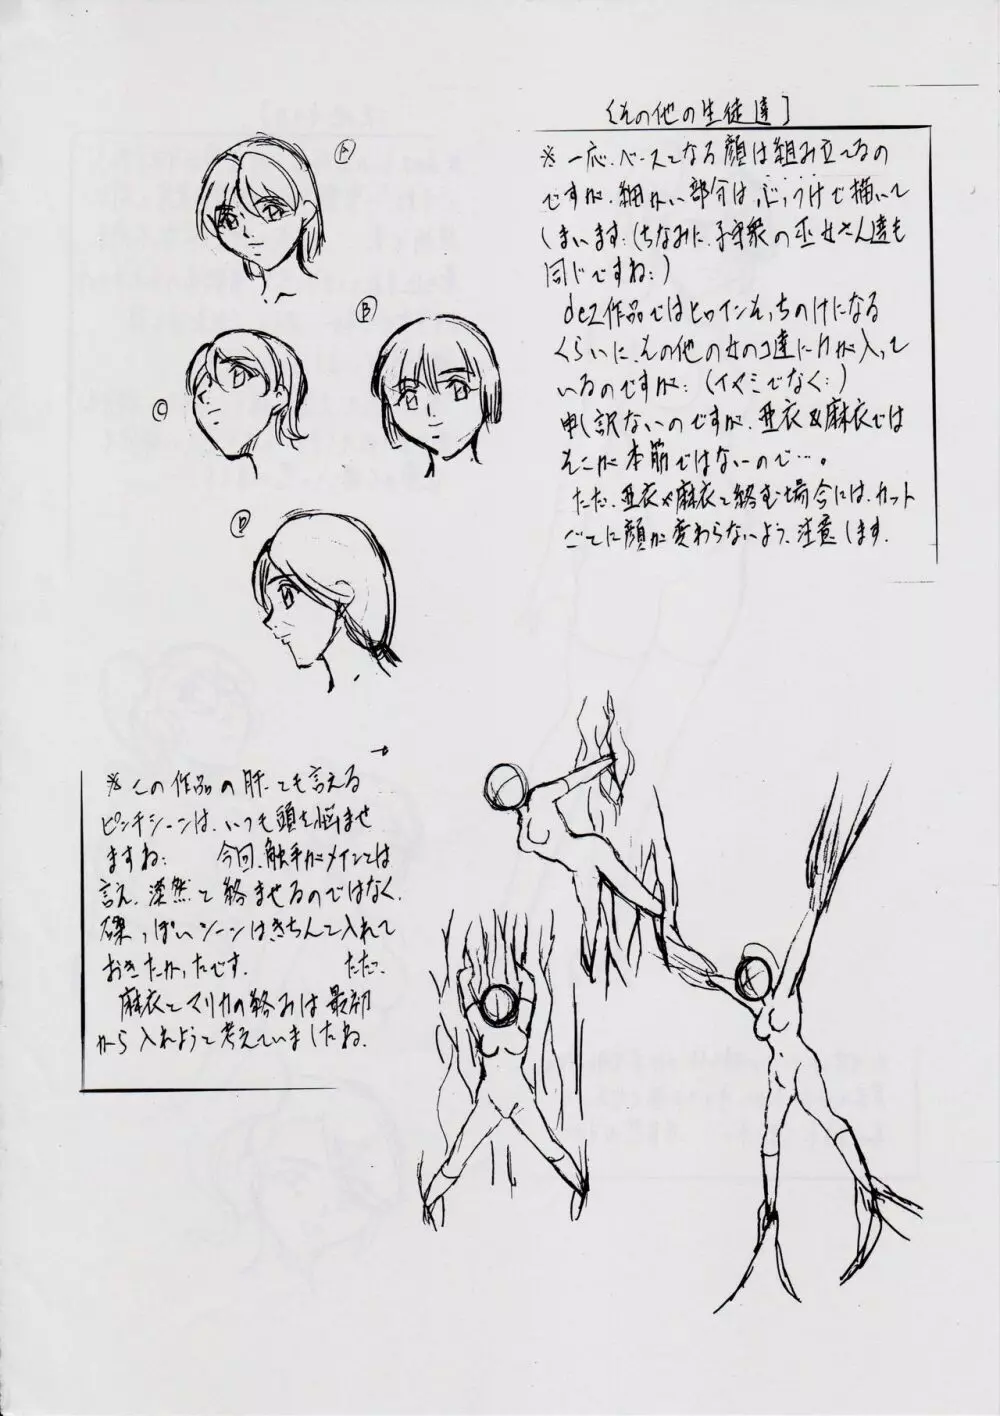 [その他の生徒達]
※ 一応、ベースとなる顔は組み立てるの
ですが、細かい部分は、ぶっつけで描いて
しまいます:(ちなみに、子守衆の巫女さん達も
同じですね:)
dez作品ではヒロインそっちのけになる
くらいに、その他の女のコ達に力が入って
いるのですが:(イヤミでなく:)
申し訳ないのですが、亜衣&麻衣では
そこが本筋ではないので…。
ただ、亜衣や麻衣と絡む場合には、カット
ごとに顔が変わらないよう、注意します.
A
B
C
D
※ この作品の肝とも言える
ピンチシーンは、いつも頭を悩ませ
ますね: 今回、触手がメインとは
言え、漠然と絡ませるのではなく、
磔っぽいシーンはきちんと入れて
おきたかったです. ただ.
麻衣とマリカの絡みは最初
から入れようと考えていましたね.